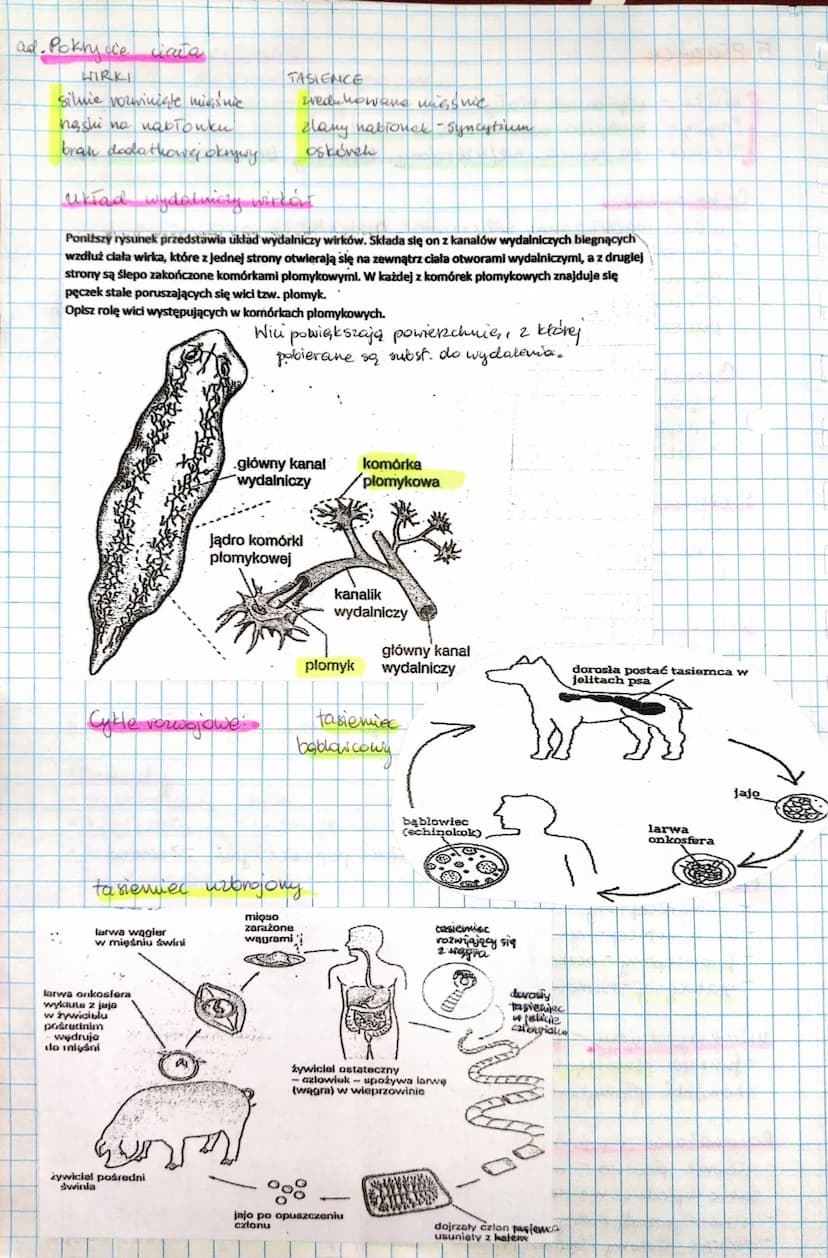 ad. Pokrycie ciała
WIRKI TASIEMCE
silnie rozwinięte mięśnie zredukowane mięśnie
rzęski na nabłonku zlany nabłonek - syncytium
brak dodatkowej okrywy oskórek
układ wydalniczy wirków
Poniższy rysunek przedstawia układ wydalniczy wirków. Składa się on z kanałów wydalniczych biegnących
wzdłuż ciała wirka, które z jednej strony otwierają się na zewnątrz ciała otworami wydalniczymi, a z drugiej
strony są ślepo zakończone komórkami płomykowymi. W każdej z komórek płomykowych znajduje się
pęczek stale poruszających się wici tzw. płomyk.
Opisz rolę wici występujących w komórkach płomykowych.
Wici powiększają powierzchnię, z której
pobierane są subst. do wydalenia.
główny kanał
wydalniczy
komórka
płomykowa
jądro komórki
płomykowej
kanalik
wydalniczy
płomyk
główny kanał
wydalniczy
Cykle rozwojowe:
tasiemiec
bąblowcowy
dorosła postać tasiemca w
jelitach psa
jajo
larwa
onkosfera
bąblowiec
(echinokok)
tasiemiec uzbrojony
larwa wągier
w mięśniu świni
mięso
zarażone
wągrami
tasiemiec
rozwijający się
z wągra
dorosły
tasiemiec
w jelicie
człowieka
larwa onkosfera
wykluta z jaja
w żywicielu
pośrednim
wędruje
do mięśni
żywiciel ostateczny
– człowiek – spożywa larwę
(wągra) w wieprzowinie
żywiciel pośredni
świnia
jajo po opuszczeniu
członu
dojrzały człon tasiemca
usunięty z kałem